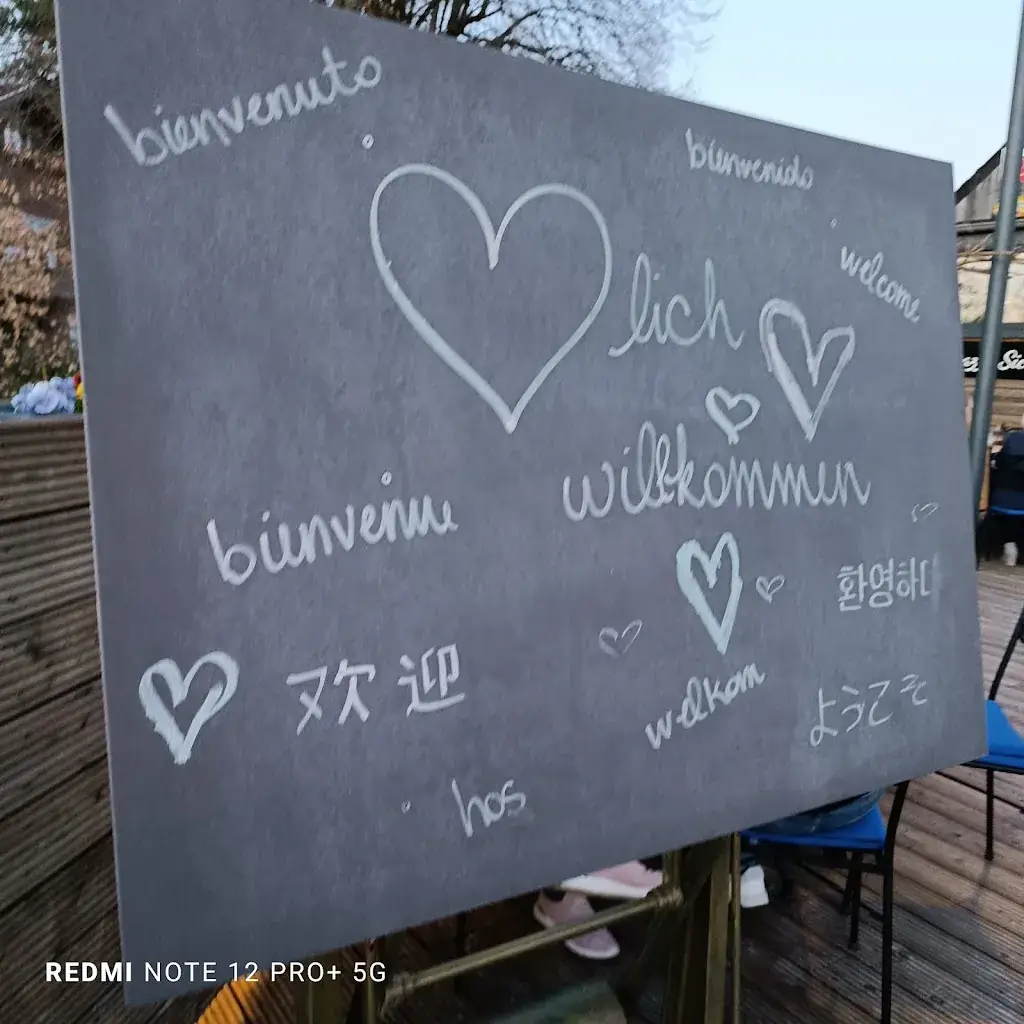 bienvenuto
bienvenido
welcome
lich
willkommen
bienvenue
환영하
欢迎
welkom
ようこそ
hos
REDMI NOTE 12 PRO+ 5G